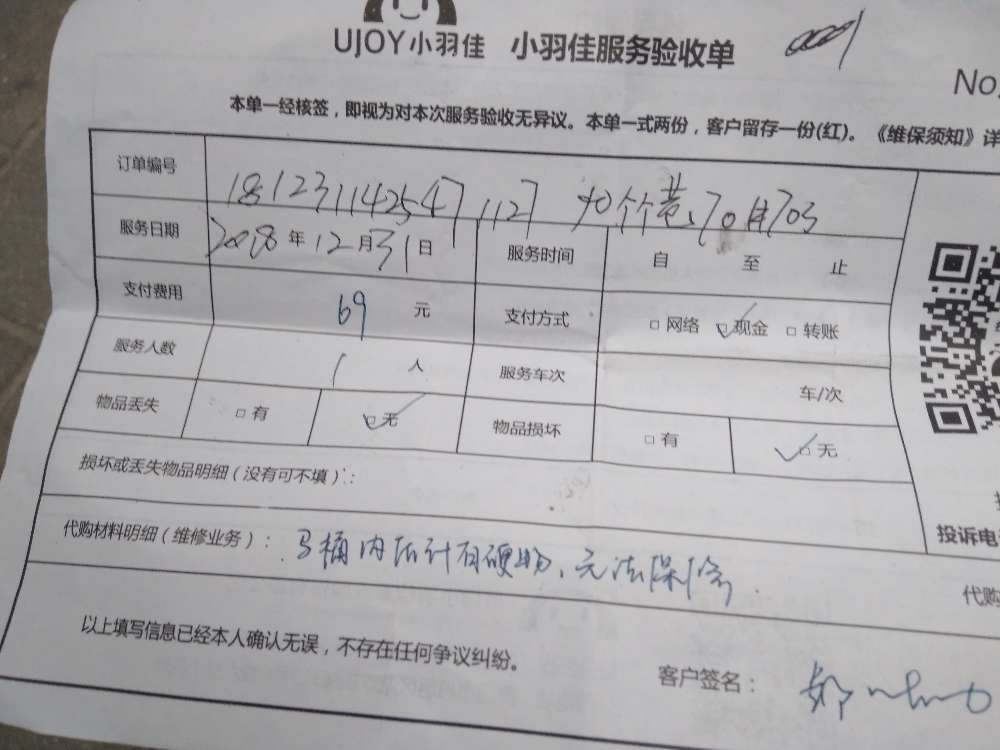 UJOY小羽佳 小羽佳服务验收单
No
本单一经核签，即视为对本次服务验收无异议。本单一式两份，客户留存一份(红)。《维保须知》详
订单编号 181231142547127 70 703
服务日期 2018年12月31日 服务时间 自 至 止
支付费用 69 元 支付方式 □ 网络 □ 现金 □ 转账
服务人数 1 人 服务车次 车/次
物品丢失 □ 有 □ 无 物品损坏 □ 有 □ 无
损坏或丢失物品明细（没有可不填）：
投诉电
代购材料明细（维修业务）： 马桶内估计有硬物、无法保修
代购
以上填写信息已经本人确认无误，不存在任何争议纠纷。
客户签名： 郑